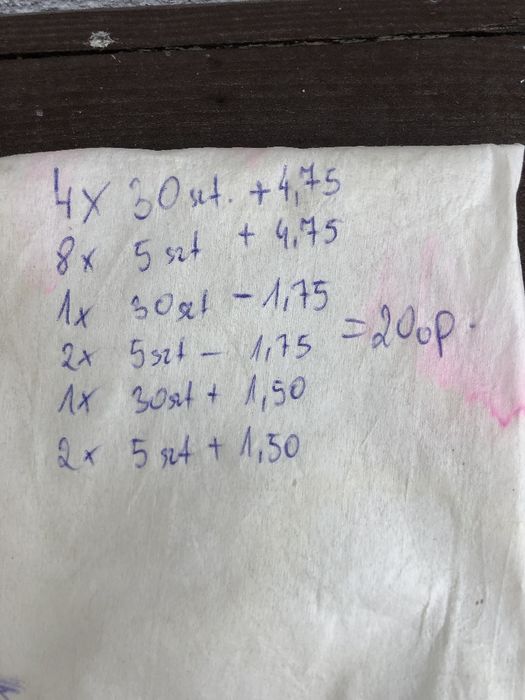 4x 30szt. +4,75
8x 5szt + 4,75
1x 30szt - 1,75
2x 5szt - 1,75 = 20op.
1x 30szt + 1,50
2x 5szt + 1,50